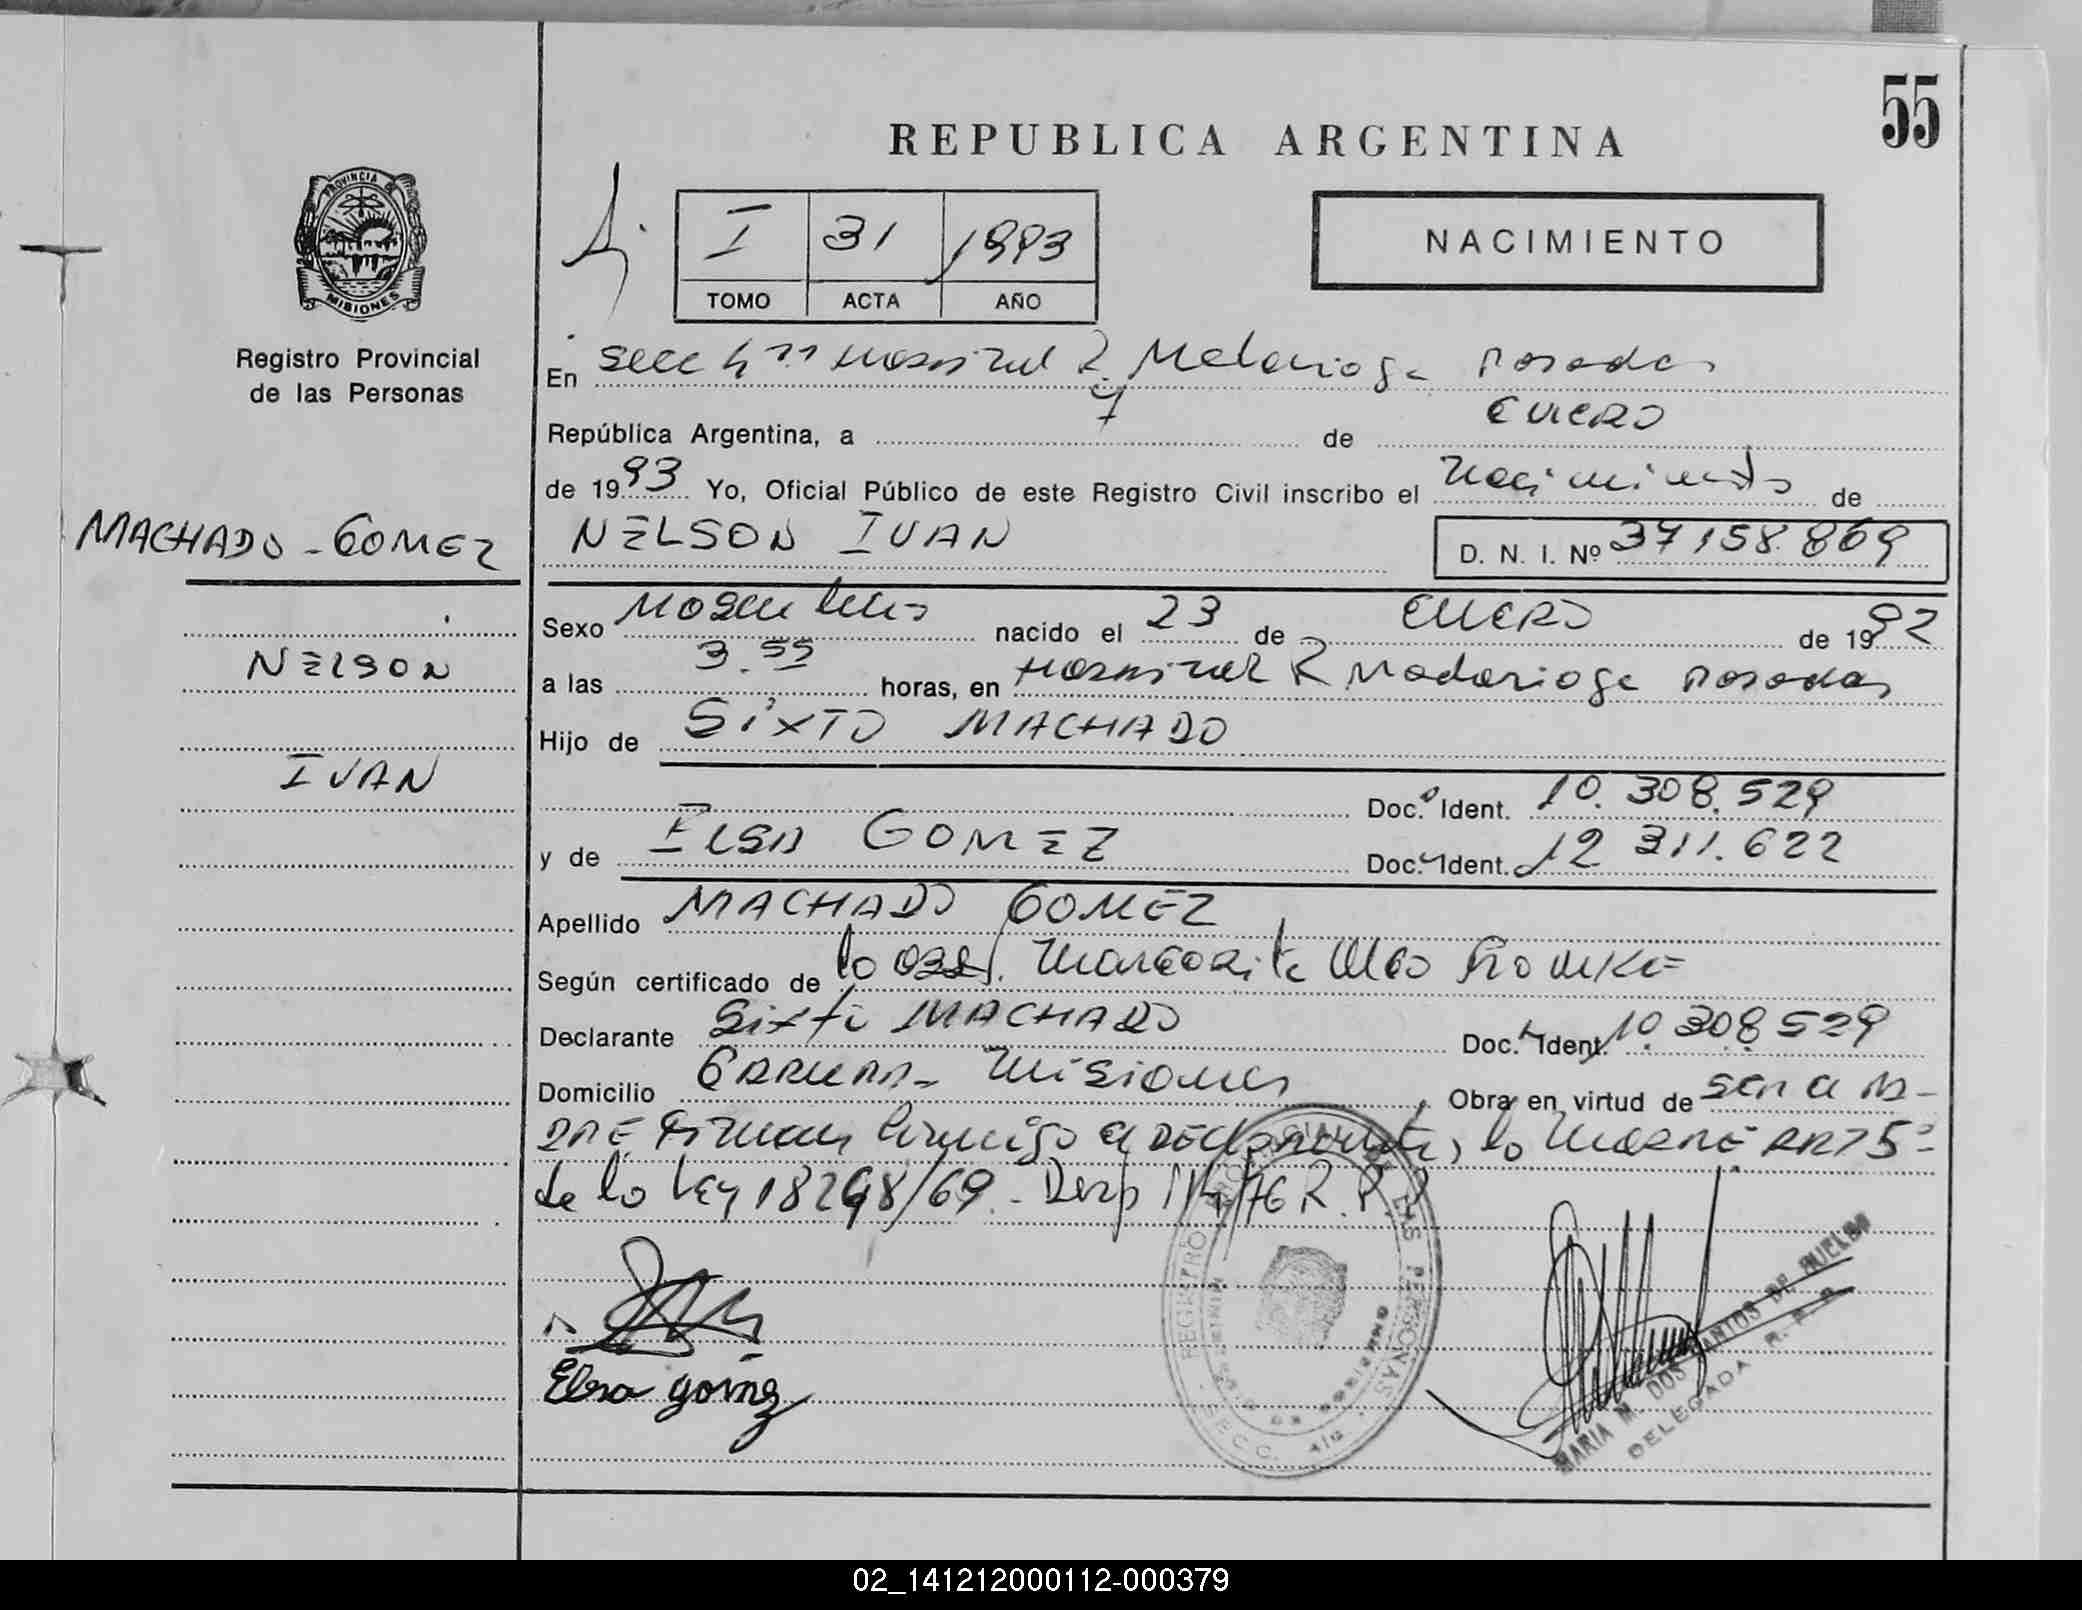 55
REPUBLICA ARGENTINA
PROVINCIA DE
MISIONES
Registro Provincial
de las Personas
I 31 1993
TOMO ACTA AÑO
NACIMIENTO
En Secc 4ª Hospital R. Madariaga Posadas
República Argentina, a 7 de ENERO
de 1993 Yo, Oficial Público de este Registro Civil inscribo el Nacimiento de
MACHADO - GOMEZ
NELSON IVAN
D. N. I. Nº 37.158.869
Sexo Masculino nacido el 23 de ENERO de 1992
NELSON
a las 3.55 horas, en Hospital R Madariaga Posadas
Hijo de SIXTO MACHADO
IVAN
Doc. Ident. 10.308.529
y de ELSA GOMEZ Doc. Ident. 12.311.622
Apellido MACHADO GOMEZ
Según certificado de la Obst. Margarita
Declarante Sixto MACHADO Doc. Ident. 10.308.529
Domicilio GARUPA - Misiones Obra en virtud de ser el PA-
DRE Firman conmigo el DECLARANTE, la MADRE ART 5º
de la Ley 18248/69. - Disp 114/76 R.P.P
Elsa goméz
REGISTRO PROVINCIAL DE LAS PERSONAS
SECC. 4ta
MARIA M. DOS SANTOS DE BUELBA
DELEGADA R. P. P.
02_141212000112-000379